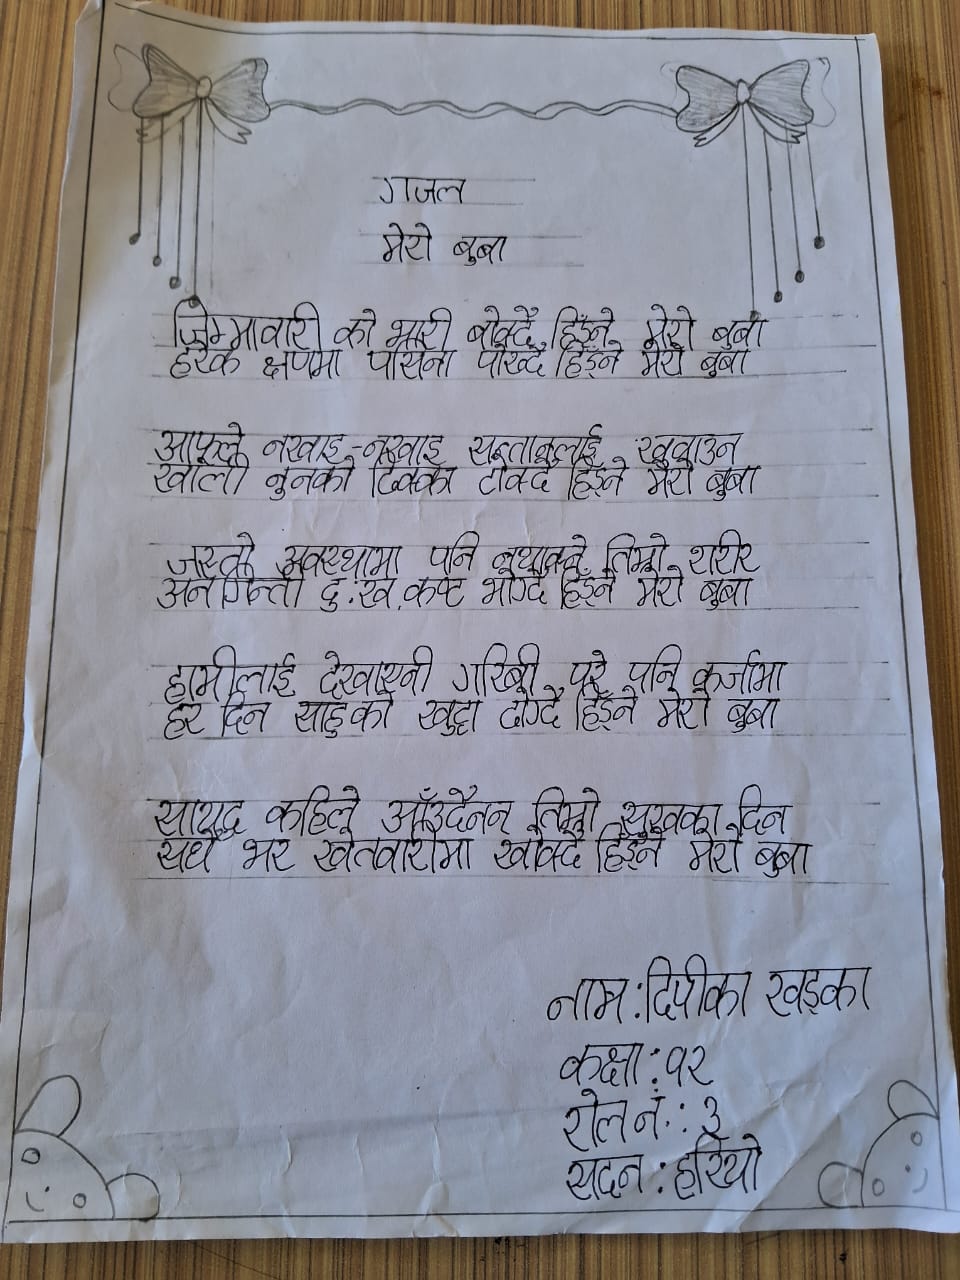 गजल
मेरो बुबा
जिम्मावारी को भारी बोक्दै हिँड्ने मेरो बुबा
हरेक क्षणमा पसिना पोख्दै हिँड्ने मेरो बुबा
आफूले नखाइ-नखाइ सन्तानलाई खुवाउन
खाली नुनको ढिक्का टोक्दै हिँड्ने मेरो बुबा
जस्तो अवस्थामा पनि नथाक्ने तिम्रो शरीर
अनगिन्ती दु:ख कष्ट भोग्दै हिँड्ने मेरो बुबा
हामीलाई देखाएनौ गरिबी परे पनि कर्जामा
हर दिन साहुको खुट्टा ढोग्दै हिँड्ने मेरो बुबा
सायद कहिले आँउदैनन् तिम्रो सुखका दिन
सधै भर खेतवारीमा खोक्दै हिँड्ने मेरो बुबा
नाम : दिपीका खड्का
कक्षा : १२
रोल नं. : ३
सदन : हरियो